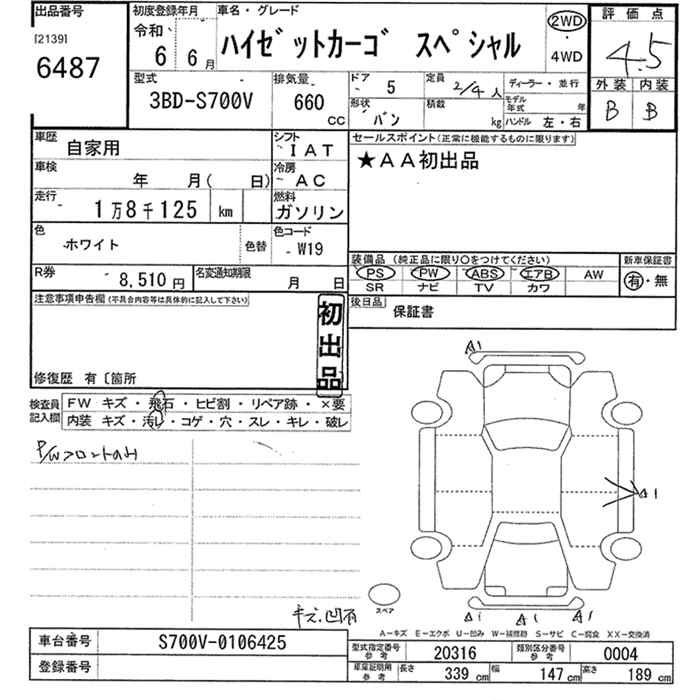 出品番号
[2139]
6487
初度登録年月
令和
6 6月
車名・グレード
ハイゼットカーゴ スペシャル
2WD
・
4WD
評価点
4.5
外装 内装
B B
型式
3BD-S700V
排気量
660
CC
ドア
5
定員
2/4人
ディーラー・並行
形状
バン
積載
kg
モデル年式
年
ハンドル 左・右
車歴
自家用
シフト
IAT
車検
年 月( 日)
冷房
AC
走行
1万8千125 km
燃料
ガソリン
色
ホワイト
色替
色コード
W19
R券
8,510円
名変通知期限
月 日
セールスポイント(正常に機能するものに限ります)
★AA初出品
装備品(純正品に限り○をつけてください)
PS PW ABS エアB AW
SR ナビ TV カワ
新車保証書
有・無
後日品
保証書
注意事項申告欄(不具合内容等は具体的に記入して下さい)
初出品
修復歴 有〔箇所
検査員記入欄
FW キズ・飛石・ヒビ割・リペア跡・×要
内装 キズ・汚レ・コゲ・穴・スレ・キレ・破レ
P/Wフロントのみ
A1
A1
キズ、凹有
スペア
A1 A1 A1
A-キズ E-エクボ U-凹み W-補修跡 S-サビ C-腐食 XX-交換済
車台番号
S700V-0106425
登録番号
型式指定番号
参考
20316
類別区分番号
参考
0004
車庫証明用
参考
長さ
339 cm
幅
147 cm
高さ
189 cm